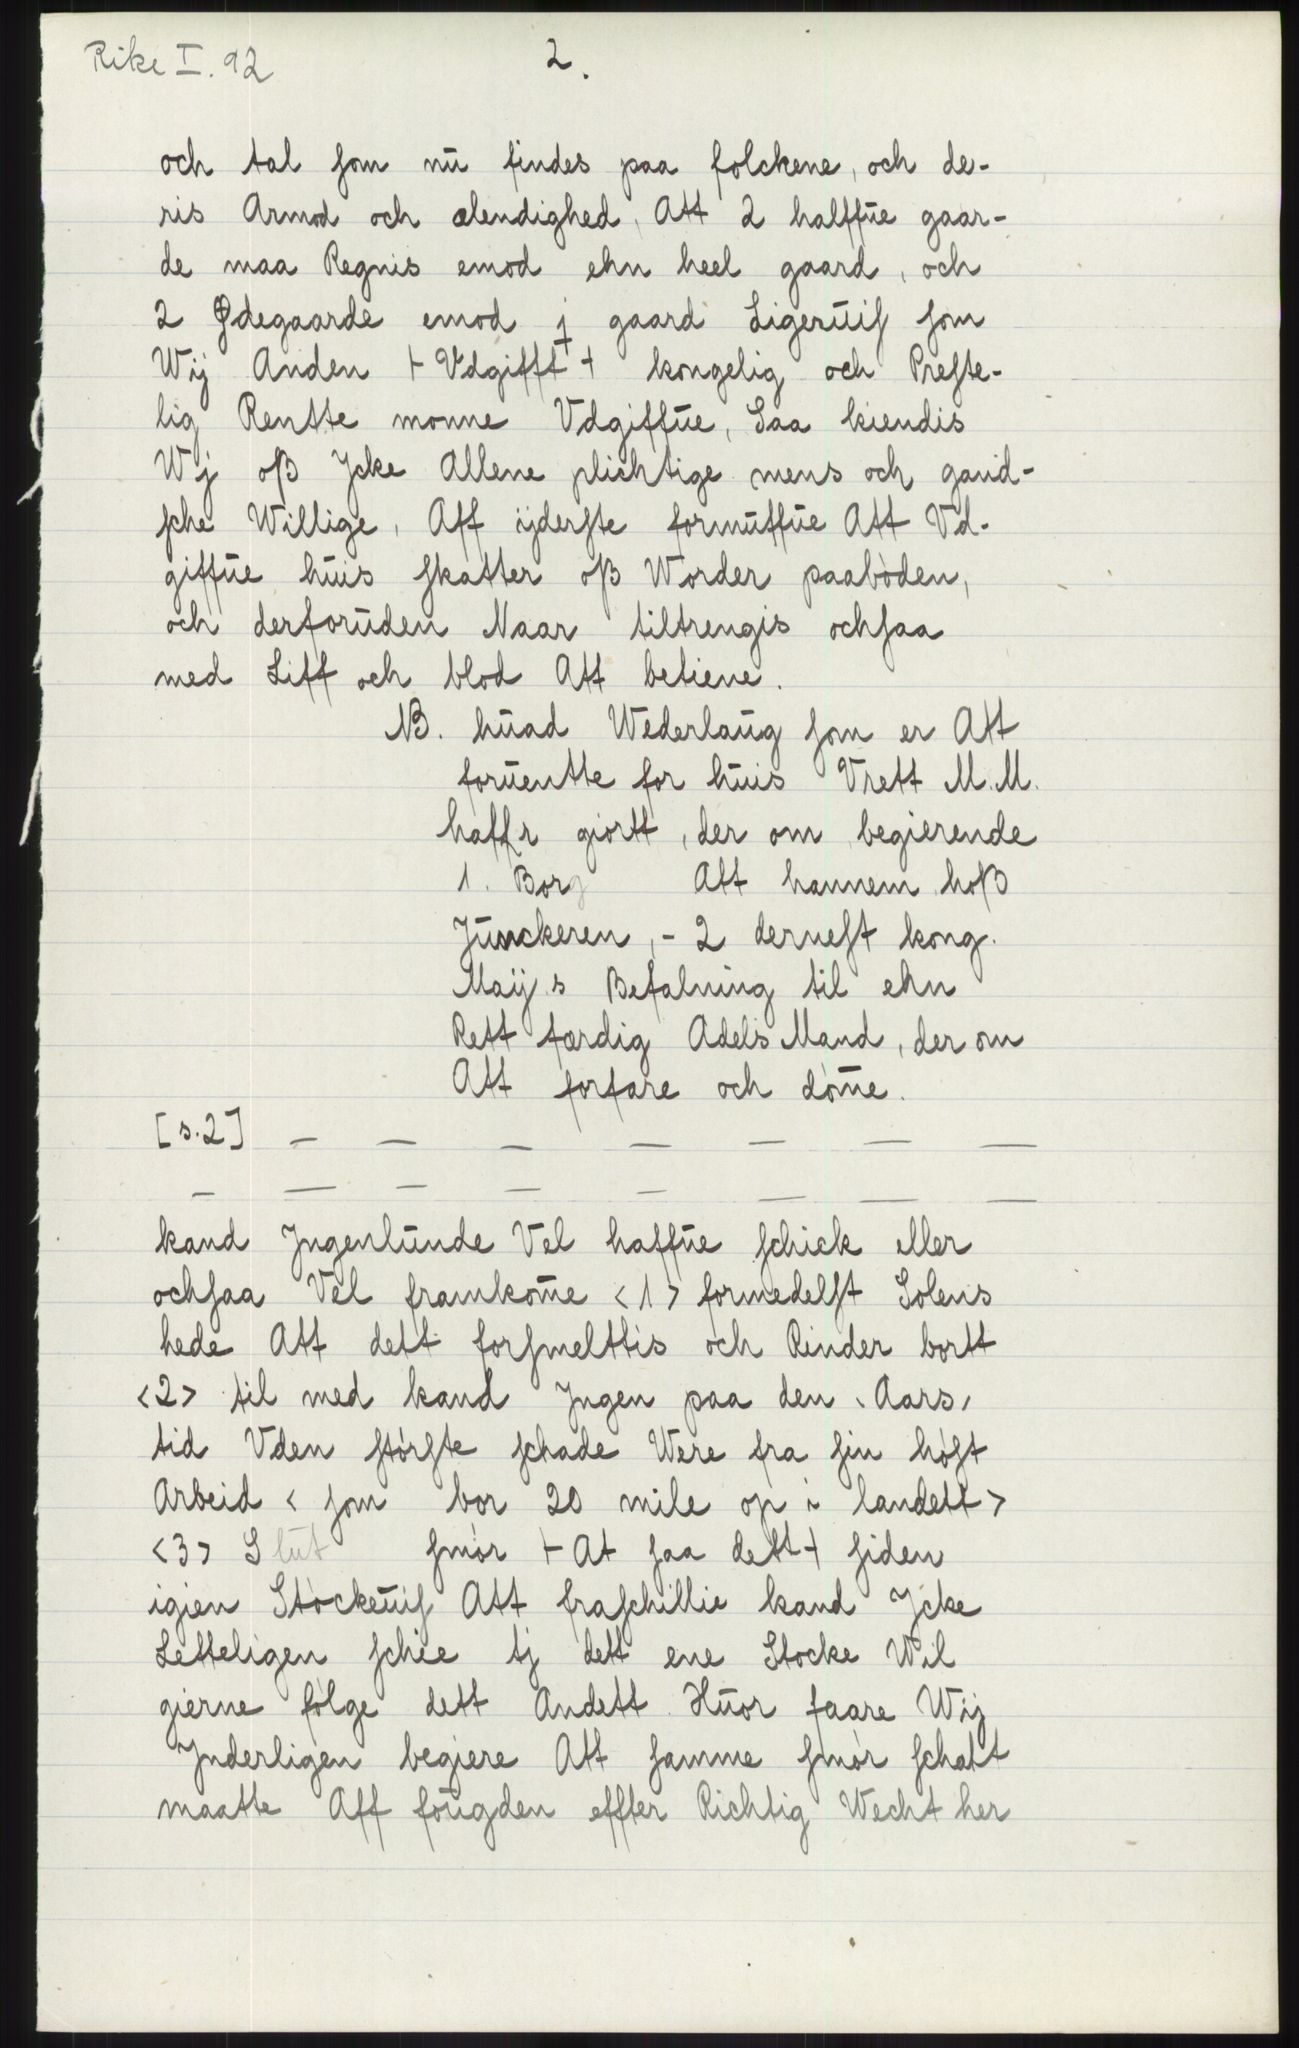 Rike I. 92
2.
och tal som nū findes paa folckene, och de-
ris Armod och ælendighed, Att 2 halffūe gaar-
de maa Regnis emod ehn heel gaard, och
2 Ødegaarde emod j gaard Ligerūiſ ſom
Wij Anden ⊢ Vdgifft ⊣ kongelig och Preſte-
lig Rentte monne Vdgiffūe, Saa kiendis
Wj oß Jcke Allene plichtige mens och gand-
ſche Willige, Aff ijderſte formūffūe Att Vd-
giffūe hūis ſkatter oß Worder paaböden,
och derforūden Naar tiltrengis ochſaa
med Liff och blod Att betiene.
NB. hūad Wederlaūg ſom er Att
forūentte for hūis Vrett M.M.
haffr giortt, der om begierende
1. Borg Att hannem hoß
Jūnckeren, - 2 derneſt kong.
Maij s Befalning til ehn
Rett færdig Adels Mand, der om
Att forfare och döm̄e.
[s.2] — — — — — — —
— — — — — — — —
kand Jngenlūnde Vel haffūe ſchick eller
ochſaa Vel framkom̄e <1> formedelſt Solens
hede Att dett forſmelttis och Rinder bortt
<2> til med kand Jngen paa den Aars,
tid Vden ſtörſte ſchade Were fra ſin höſt
Arbeid < ſom bor 20 mile op i landett>
<3> Slūt ſmör ⊢ At ſaa dett ⊣ ſiden
igien Stöckeūiſ Att fraſchillie kand Jcke
Letteligen ſchee tj dett ene Stocke Wil
gierne fölge dett Andett Hūor faare Wij
Jnderligen begiere Att ſamme ſmör ſchatt
maatte Aff foūgden effter Richtig Wecht her